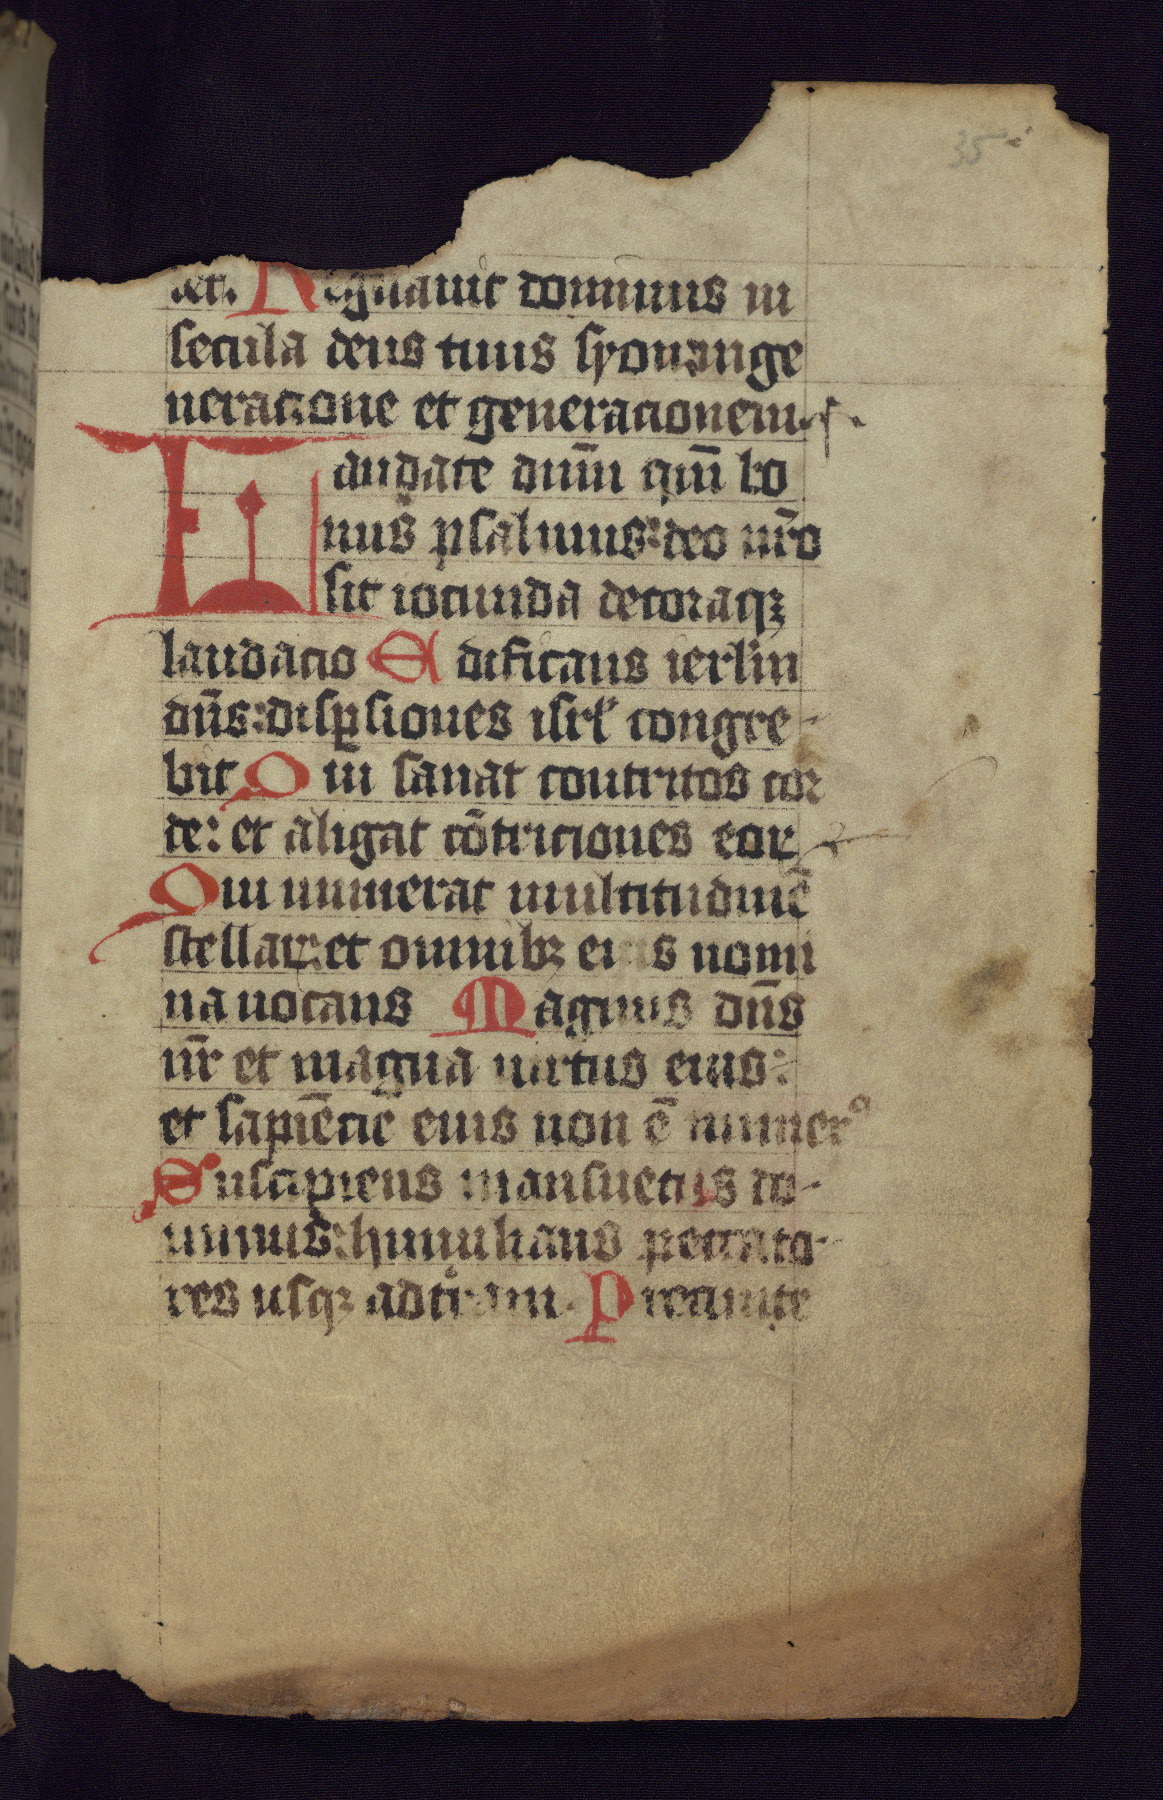 35
det. Regnauit dominus in
secula deus tuus syon ange
neracione et generacionem.
Laudate dnm̄ qm̄ bo
nus psalmus: deo nr̄o
sit iocunda decoraqꝫ
laudacio Edificans ierlm̄
dn̄s: disꝑsiones isrl̄ congre-
bit Qui sanat contritos cor
de: et aligat cōtriciones eoꝝ
Qui numerat multitudinē
stellaꝝ: et omnibꝫ eius nomi
na uocans Magnus dn̄s
nr̄ et magna uirtus eius:
et sapiēcie eius non ē numerꝰ
Suscipiens mansuetus do-
minus: humilians peccato-
res usqꝫ ad terram. Precinite